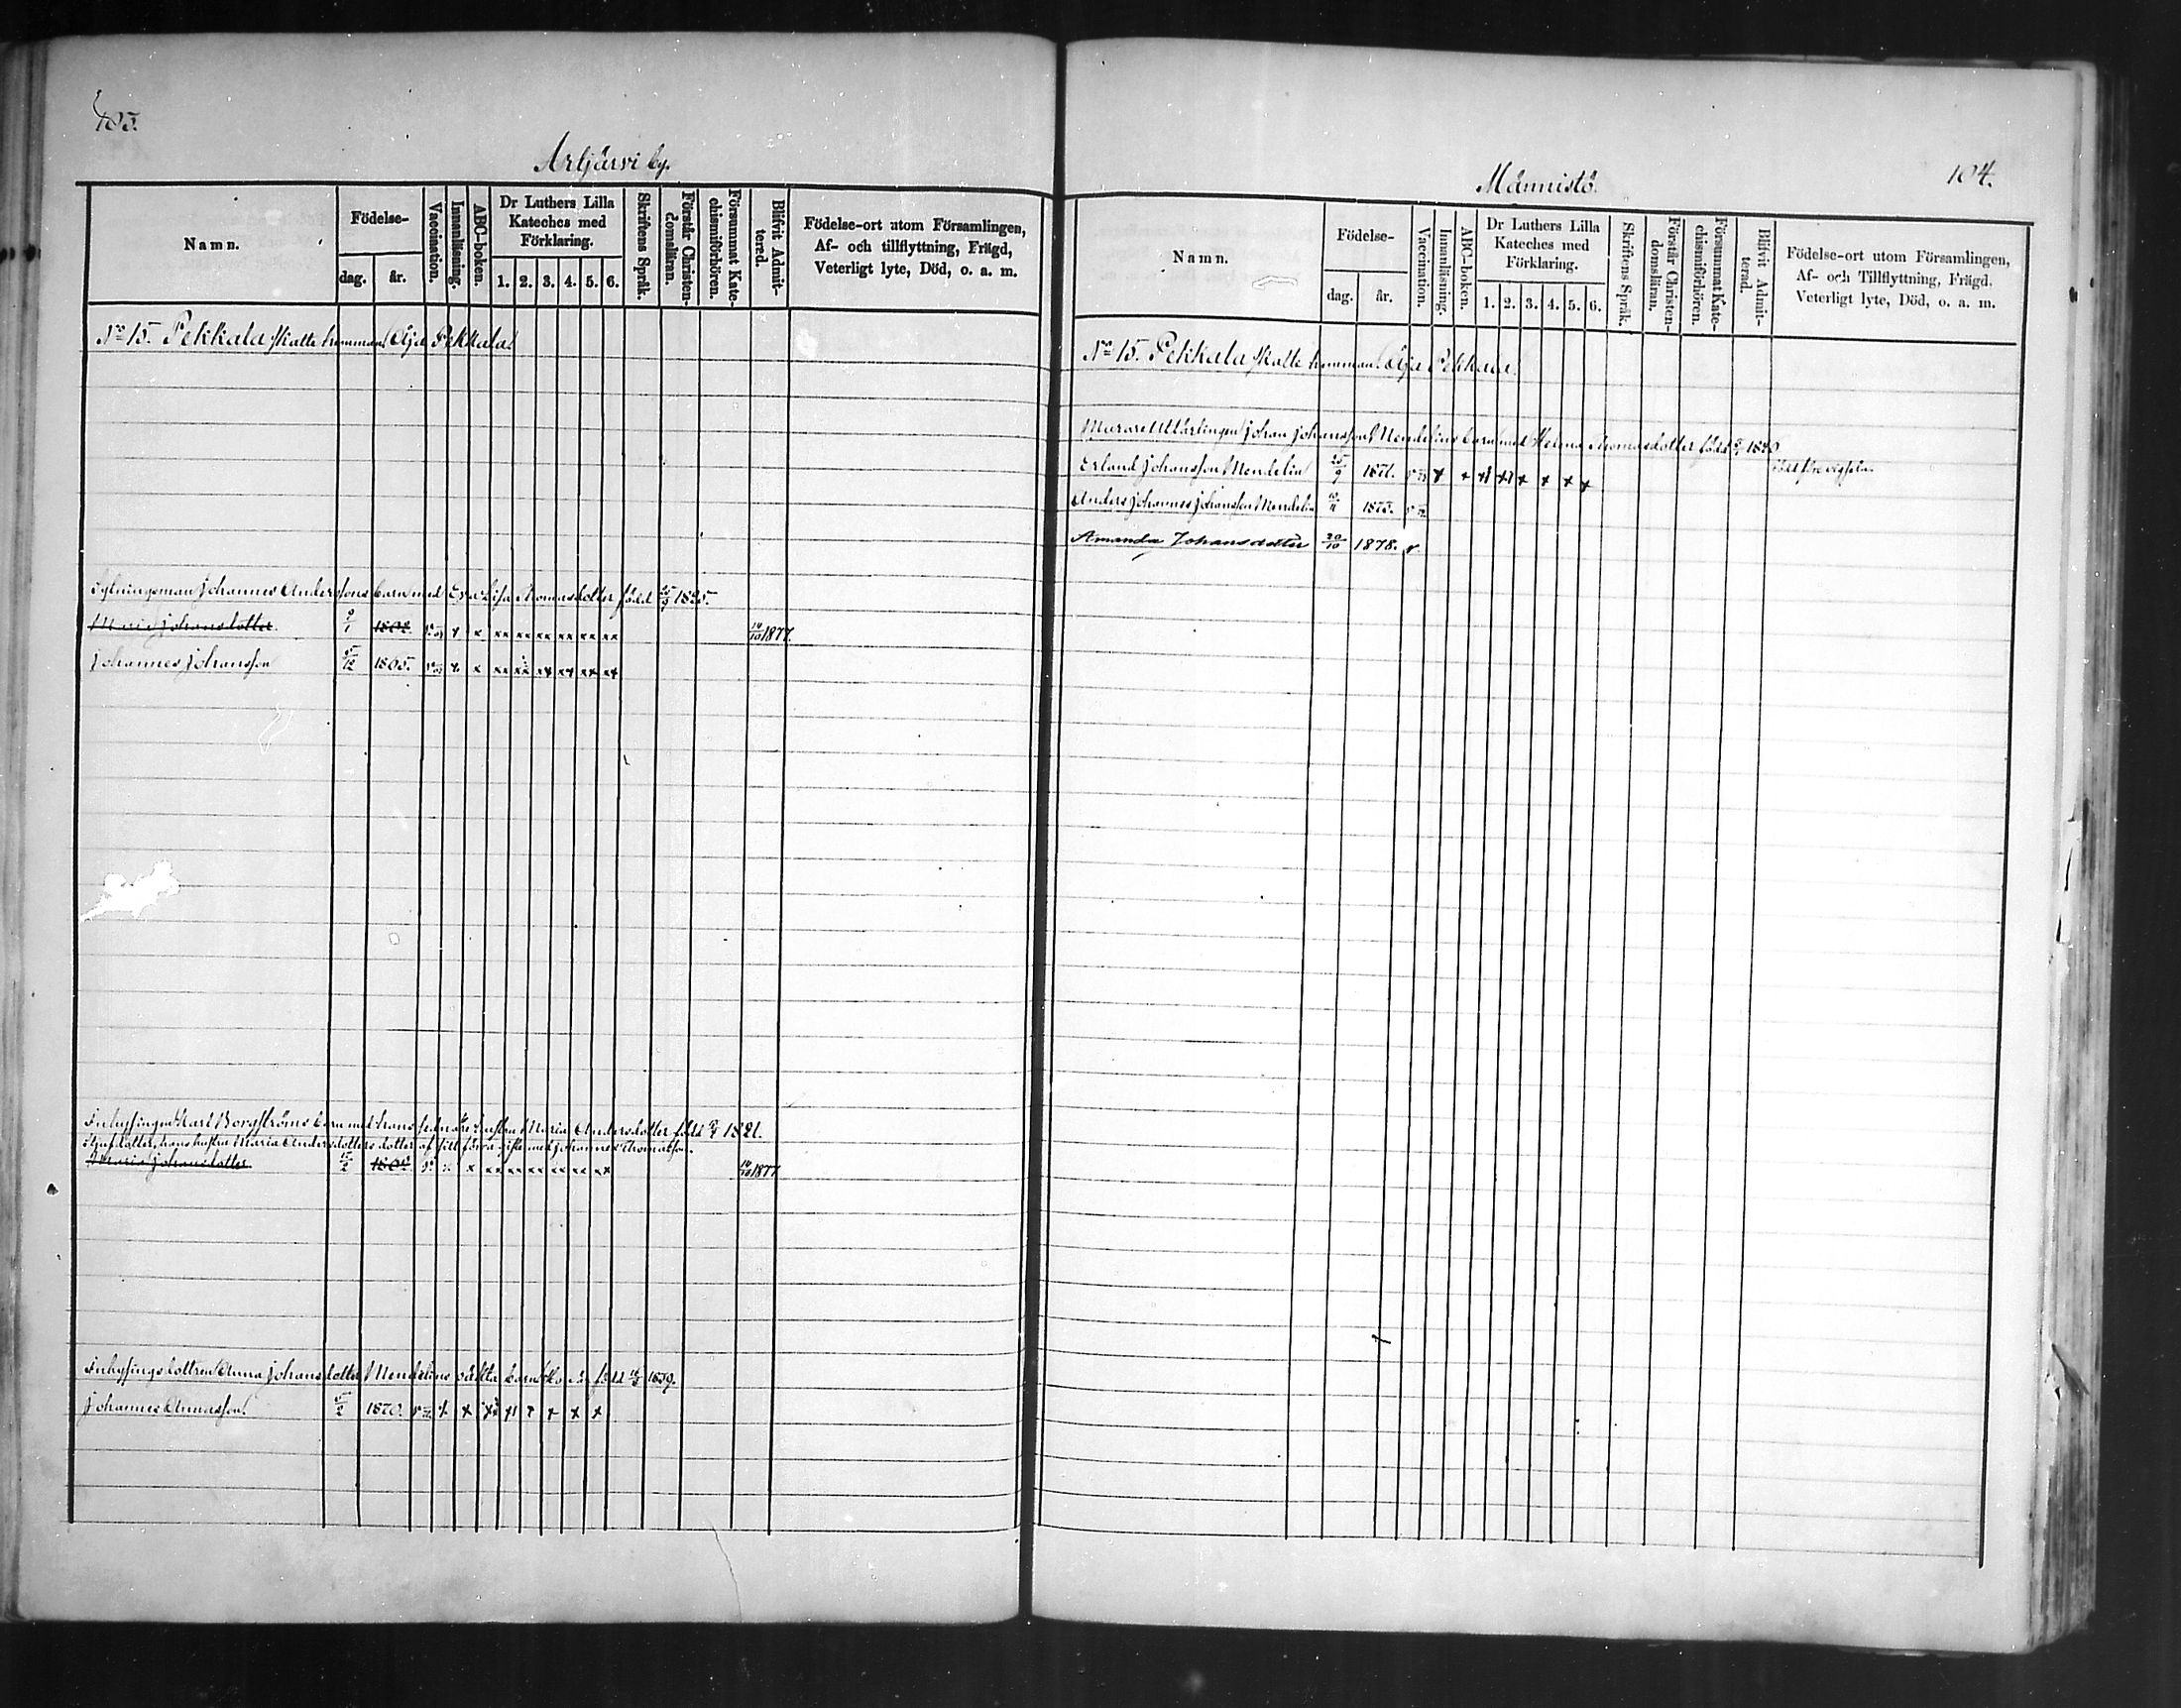 103.
Artjärvi by.
Namn.
Födelse-
dag. år.
Vaccination.
Innanläsning.
ABC-boken.
Dr Luthers Lilla
Kateches med
Förklaring.
1. 2. 3. 4. 5. 6.
Skriftens Språk.
Förstår Christen-
domsläran.
Försummat Kate-
chismiförhören.
Blifvit Admit-
terad.
Födelse-ort utom Församlingen,
Af- och tillflyttning, Frägd,
Veterligt lyte, Död, o. a. m.
No 15. Pekkala skatte hemman Pekkala
Johannes Anderssons barn med Eva Lisa Thomasdotter född 1825.
Maria Johansdotter 1862. x xx xx xx xx xx xx 14/10 1877.
Johannes Johansson 1865. x xx xx xx xx xx xx
Inhysingen Karl Borgströms barn med hans hustru Maria Andersdotter född 1821.
hans hustru Maria Andersdotters dotter gifte med Johannes Thomasson.
Maria Johansdotter 1862. x xx xx xx xx xx xx 1877
Anna Johansdotter Mendelins oäkta barn född 1839.
Johannes Annasson 1870. x x x
Männistö.
104.
Namn.
Födelse-
dag. år.
Vaccination.
Innanläsning.
ABC-boken.
Dr Luthers Lilla
Kateches med
Förklaring.
1. 2. 3. 4. 5. 6.
Skriftens Språk.
Förstår Christen-
domsläran.
Försummat Kate-
chismiförhören.
Blifvit Admit-
terad.
Födelse-ort utom Församlingen,
Af- och Tillflyttning, Frägd,
Veterligt lyte, Död, o. a. m.
No 15. Pekkala skatte hemman. Pekkala.
Johan Johansson Mendelins barn med Helena Thomasdotter född 1840
Erland Johansson Mendelin 25/9 1871. x x x x x x
Anders Johannes Johansson Mendelin 1875.
Amanda Johansdotter 20/10 1878. v.